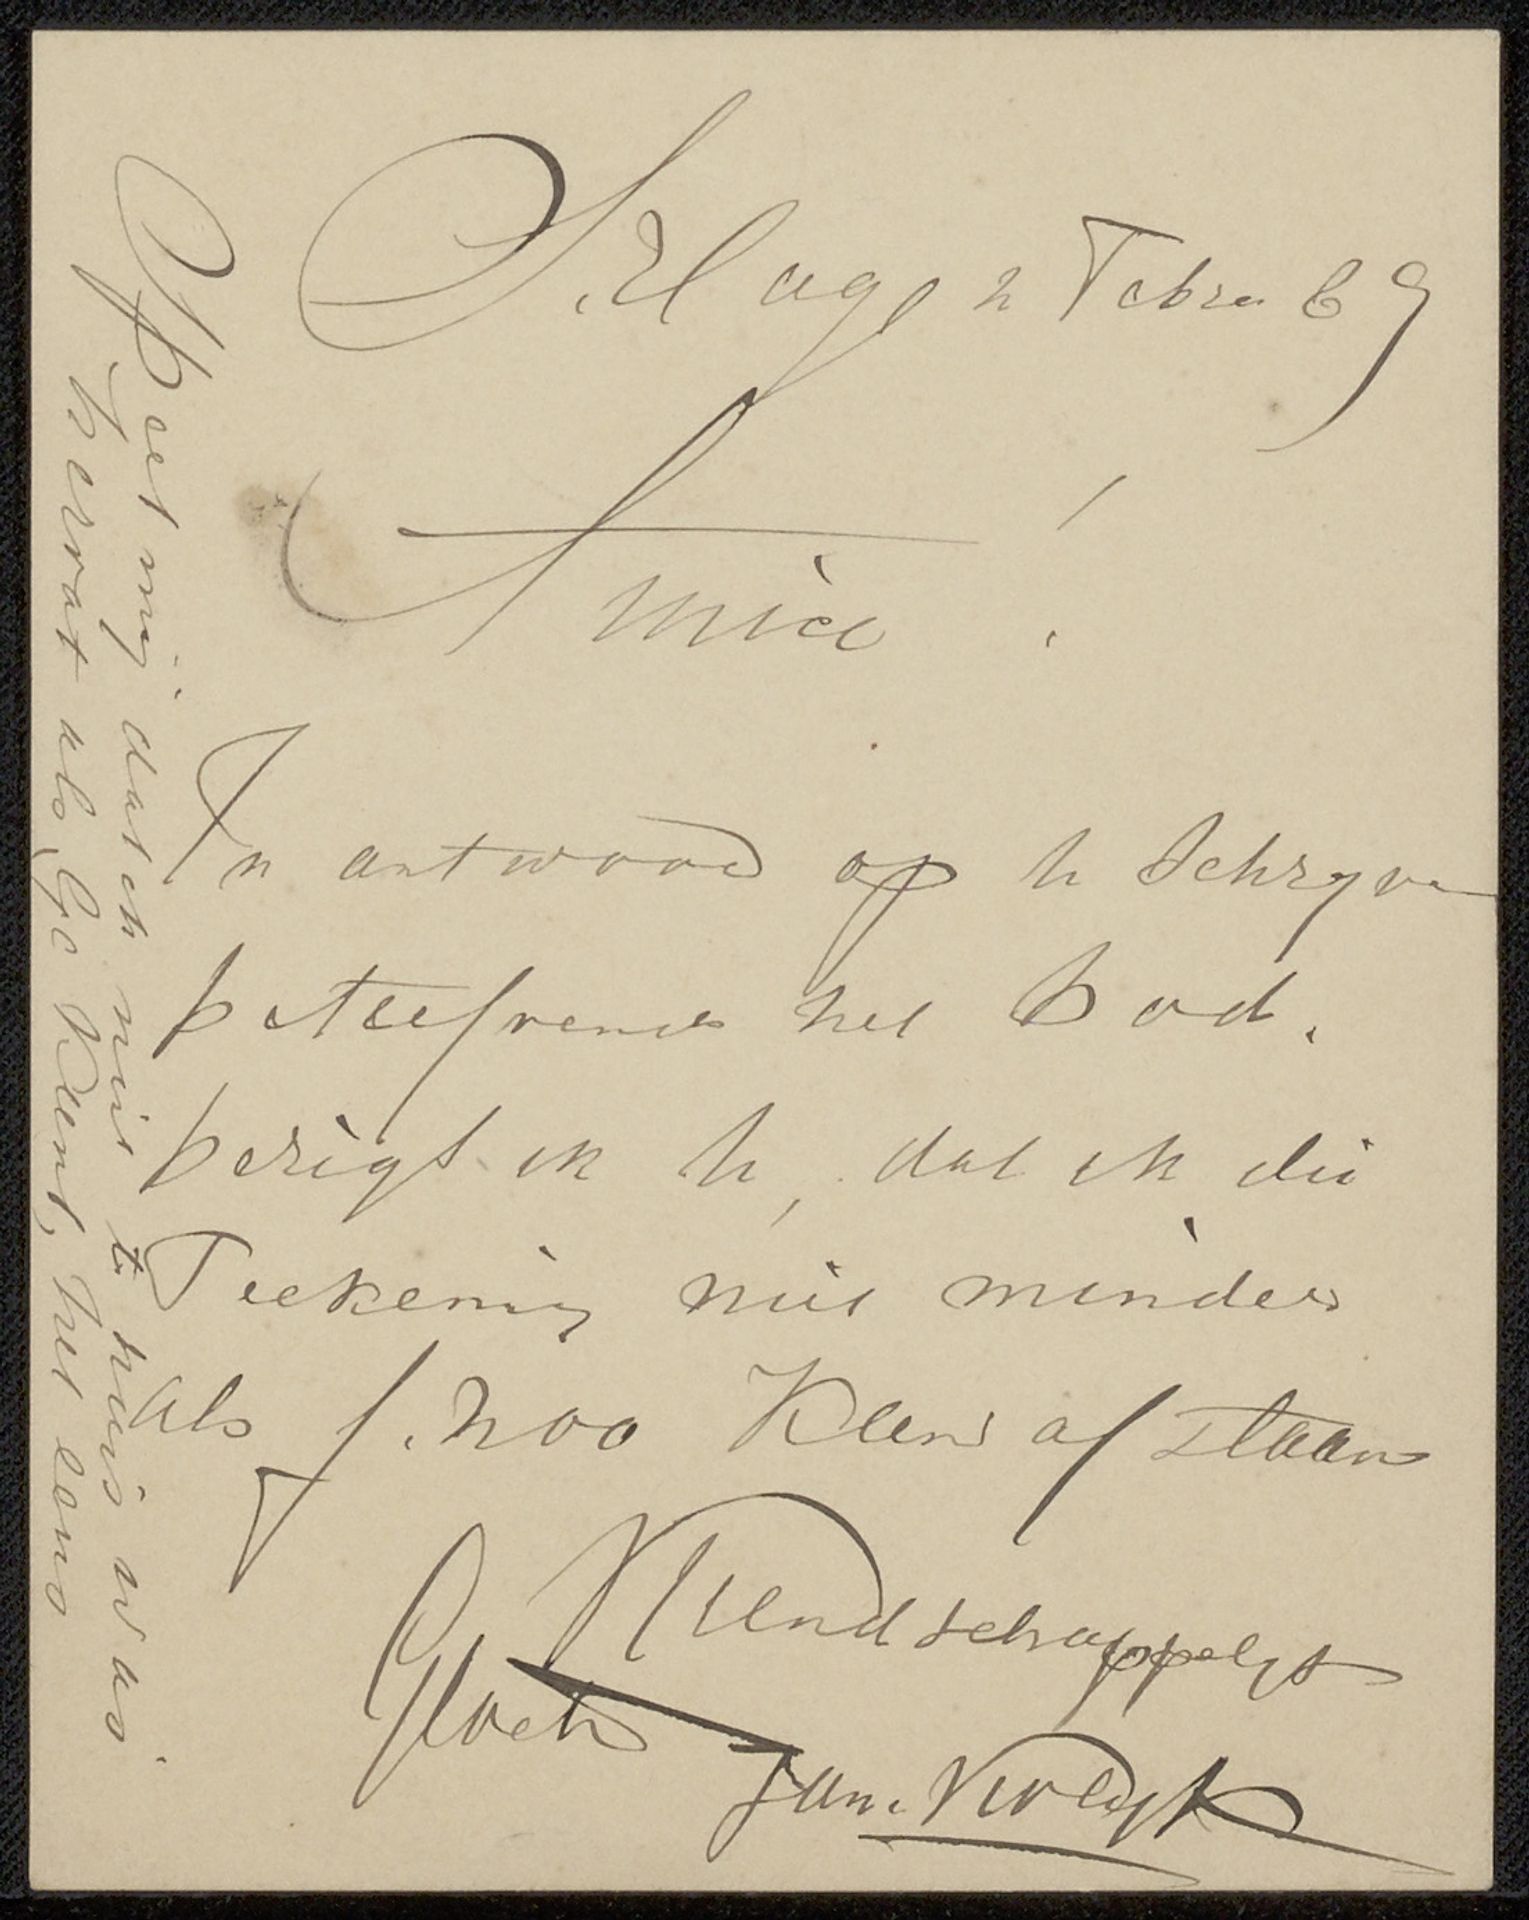 S.Hage 2 Febru 69
Amice !
In antwoord op u schryven
betreffende het bod.
berigt ik u, dat ik die
Teekening niet minder
als f. 200 kan afstaan
Vriendschappelyk
Groet
Jan. Vrolyk
Speet mij dat ik niet te huis was
hervat als ge kunt, het eens